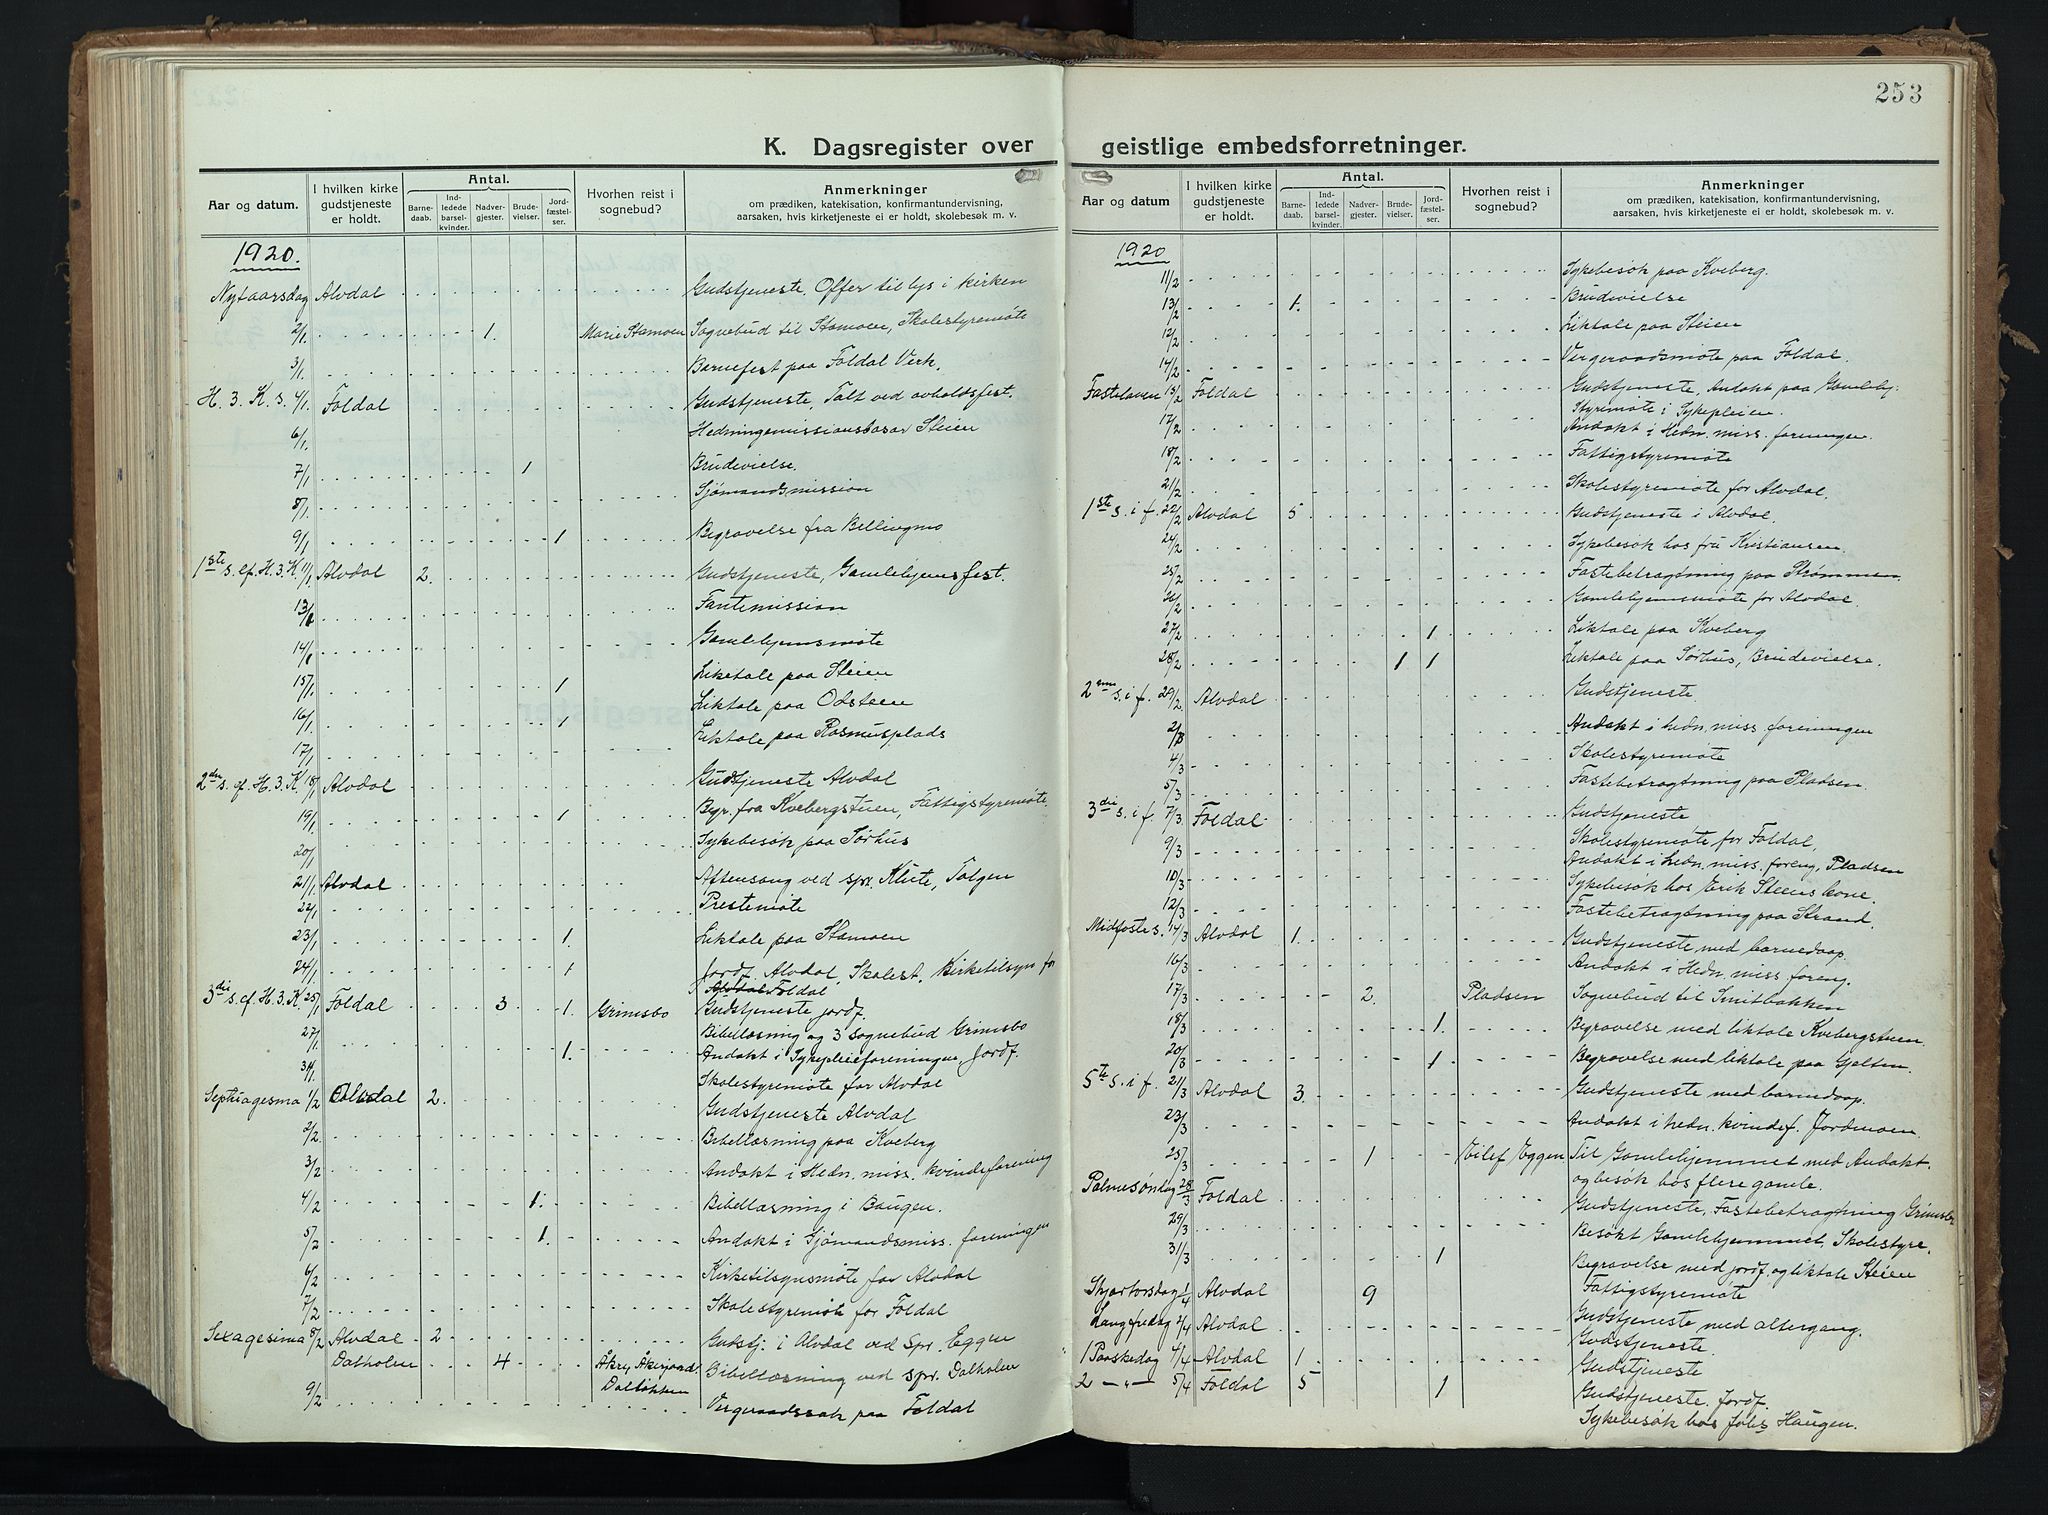 K. Dagsregister over
Aar og datum.
I hvilken kirke gudstjeneste er holdt.
Antal.
Barnedaab.
Indledede barselkvinder.
Nadvergjester.
Brudevielser.
Jordfæstelser.
Hvorhen reist i sognebud?
Anmerkninger
om prædiken, katekisation, konfirmantundervisning,
aarsaken, hvis kirketjeneste ei er holdt, skolebesøk m. v.
1920.
Nytaarsdag Alvdal Gudstjeneste. Offer til lys i kirken
2/1. 1. Marie Stamoen Sognebud til Stamoen, Skolestyremöte
3/1. Barnefest paa Foldal Verk.
H. 3. K. s. 4/1. Foldal Gudstjeneste, Talt ved avholdsfest.
6/1. Hedningemissionsbasar Steien
7/1 1 Brudevielse.
8/1. Sjömandsmission
9/1 1 Begravelse fra Bellingmo
1ste s. ef. H. 3. K. 11/1 Alvdal 2. Gudstjeneste, Gamlehjemsfest.
13/1 Fantemission
14/1 Gamlehjemsmöte
15/1. 1 Liketale paa Steien
16/1 1 Liktale paa Odsteen
17/1 Liktale paa Rasmusplads
2den s. ef. H. 3. K. 18/1 Alvdal Gudstjeneste Alvdal
19/1. 1 Begr. fra Kvebergstuen, Fattigstyremöte.
20/1 Sykebesök paa Sörhus
21/1 Alvdal Aftensang ved spr. Klüte, Tolgen
22/1 Prestemöte
23/1 1. Liktale paa Stamoen
24/1. 1 Jordf. Alvdal, Skolest. Kirketilsyn for
Foldal
3die s. ef. H. 3. K. 25/1 Foldal 3 1. Grimsbo Gudstjeneste jordf.
27/1. Bibellæsning og 3 sognebud Grimsbo
1. Andakt i Sykepleieforeningen, Jordf.
31/1. Skolestyremöte for Alvdal
Septuagesima 1/2 Alvdal 2. Gudstjeneste Alvdal
2/2. Bibellæsning paa Kveberg
3/2 Andakt i Hedn. miss. kvindeforening
4/2 1. Bibellæsning i Baugen.
5/2 1. Andakt i Sjömandsmiss. foreningen
6/2 Kirketilsynsmöte for Alvdal
7/2 Skolestyremöte for Foldal
Sexagesima 8/2 Alvdal 2 Gudstj. i Alvdal ved Spr. Eggen
Dalholen 4 Åkre, Åkerjord. Bibellæsning ved spr. Dalholen
Dalbakken
9/2 Vergeraadssak paa Foldal
253
geistlige embedsforretninger.
Aar og datum
I hvilken kirke gudstjeneste er holdt.
Antal.
Barnedaab.
Indledede barselkvinder.
Nadvergjester.
Brudevielser.
Jordfæstelser.
Hvorhen reist i sognebud?
Anmerkninger
om prædiken, katekisation, konfirmantundervisning,
aarsaken, hvis kirketjeneste ei er holdt, skolebesøk m. v.
1920
11/2 Sykebesök paa Kveberg.
13/2 1. Brudevielse
12/2 Liktale paa Steien
14/2 Vergeraadsmöte paa Foldal.
Fastelaven 15/2 Foldal Gudstjeneste, Andakt paa Gamlehj.
Styremöte i Sykepleien.
17/2 Andakt i Hedn. miss. foreningen.
18/2 Fattigstyremöte
21/2 Skolestyremöte for Alvdal.
1ste s. i f. 22/2 Alvdal 5 Gudstjeneste i Alvdal.
24/2 Sykebesök hos fru Kristiansen
25/2 Fastebetragtning paa Strømmen
26/2 Gamlehjemsmöte for Alvdal.
27/2 1 Liktale paa Kveberg
28/2 1 1 Liktale paa Sørhus, Brudevielse.
2nen s. i f. 29/2 Alvdal Gudstjeneste
2/3 Andakt i hedn. miss. foreningen
4/3 Skolestyremöte
5/3 Fastebetragtning paa Pladsen.
3die s. i f. 7/3. Foldal Gudstjeneste
9/3 Skolestyremöte for Foldal.
Andakt i hedn. miss. foreng. Pladsen
10/3 Sykebesök hos Erik Steens kone.
12/3 Fastebetragtning paa Strand.
Midfaste s. 14/3 Alvdal 1. Gudstjeneste med barnedaap
16/3 Andakt i Hedn. miss. foreng.
17/3 2. Pladsen Sognebud til Smitbakken
18/3 1. Begravelse med liktale Kvebergstuen.
20/3 1 Begravelse med liktale paa Gjelten.
5te s. i f. 21/3 Alvdal 3. Gudstjeneste med barnedaap.
23/3 Andakt i hedn. kvindef. Jordmoen.
25/3 1 Eilef Eggen Til Gamlehjemmet med Andakt.
og besök hos flere gamle.
Palmesöndag 28/3 Foldal Gudstjeneste, Fastebetragtning Grimsbo
29/3 Besökt Gamlehjemmet, Skolestyre.
31/3 1 Begravelse med jordf. og liktale Steien
Fattigstyremöte
Skjærtorsdag 1/4 Alvdal 9 Gudstjeneste med altergang.
Langfredag 2/4 Alvdal Gudstjeneste.
1 Paaskedag 4/4 Alvdal 1 Gudstjeneste
2 — „ — 5/4 Foldal 5 1 Gudstjeneste. Jordf.
Sykebesök hos Johs Haugen.